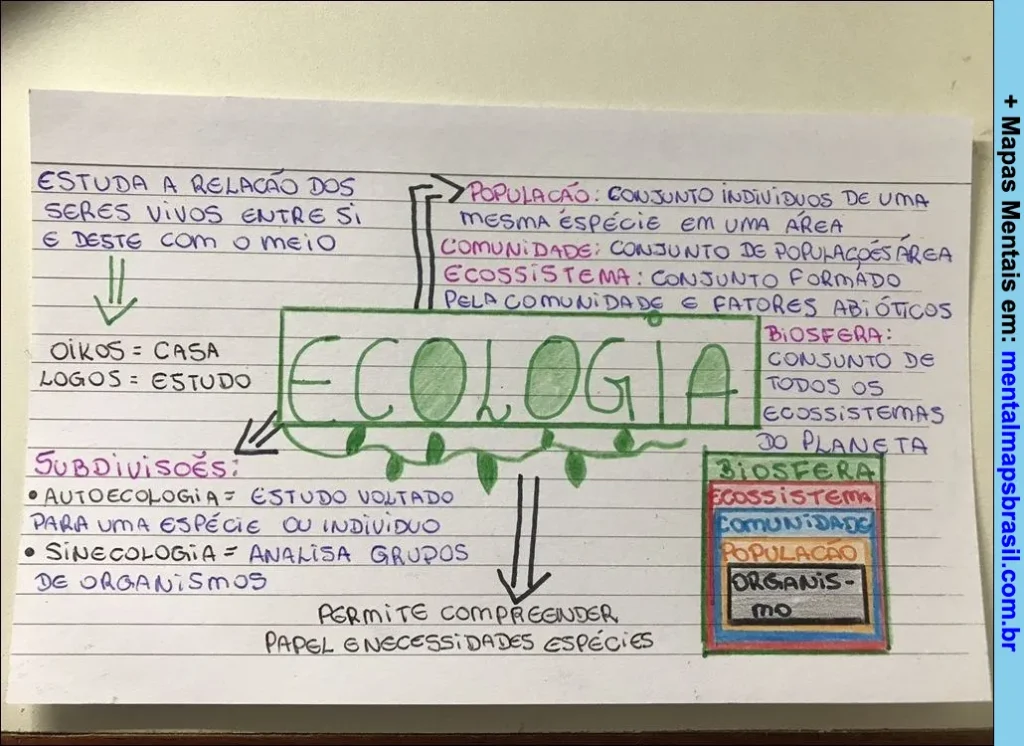 ESTUDA A RELAÇÃO DOS
SERES VIVOS ENTRE SI
E DESTE COM O MEIO
OIKOS = CASA
LOGOS = ESTUDO
POPULAÇÃO: CONJUNTO INDIVIDUOS DE UMA
MESMA ESPÉCIE EM UMA ÁREA
COMUNIDADE: CONJUNTO DE POPULAÇÕES ÁREA
ECOSSISTEMA: CONJUNTO FORMADO
PELA COMUNIDADE E FATORES ABIÓTICOS
BIOSFERA:
CONJUNTO DE
TODOS OS
ECOSSISTEMAS
DO PLANETA
ECOLOGIA
SUBDIVISOÉS:
• AUTOECOLOGIA = ESTUDO VOLTADO
PARA UMA ESPÉCIE OU INDIVIDUO
• SINECOLOGIA = ANALISA GRUPOS
DE ORGANISMOS
PERMITE COMPREENDER
PAPEL E NECESSIDADES ESPÉCIES
BIOSFERA
ECOSSISTEMA
COMUNIDADE
POPULAÇÃO
ORGANIS-
MO
+ Mapas Mentais em: mentalmapsbrasil.com.br